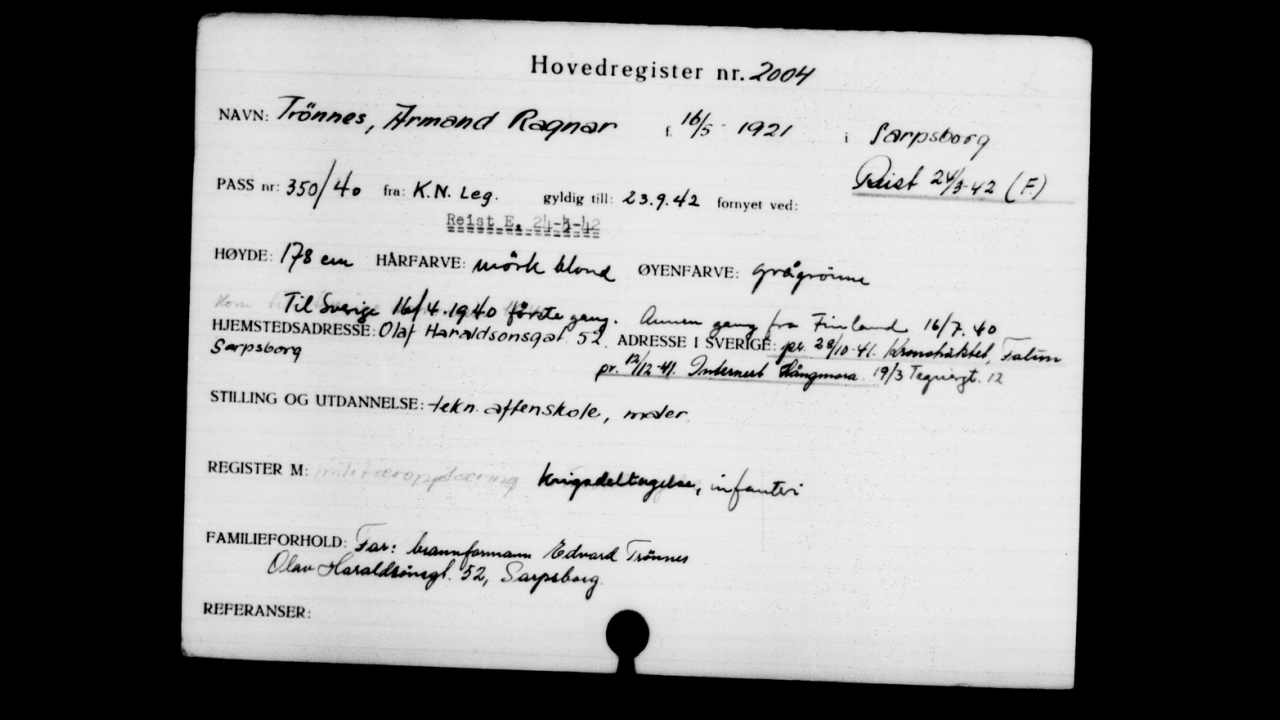 Hovedregister nr. 2004
NAVN: Trönnes, Armand Ragnar f. 16/5 - 1921 i Sarpsborg
Reist 24/3-42 (F)
PASS nr: 350/40 fra: K.N. Leg. gyldig till: 23.9.42 fornyet ved:
Reist E. 24-3-42
HØYDE: 178 cm HÅRFARVE: mörk blond ØYENFARVE: grågrönne
Til Sverige 16/4.1940 förste gang. Annen gang fra Finland 16/7.40
HJEMSTEDSADRESSE: Olaf Haraldsonsgat 52. ADRESSE I SVERIGE: pr. 28/10-41. Kronohäktet, Falun
Sarpsborg pr. 12/12-41. Internert Långmora. 19/3 Tegnérgt. 12
STILLING OG UTDANNELSE: tekn. aftenskole, maler.
REGISTER M: militæropplæring krigsdeltagelse, infanteri
FAMILIEFORHOLD: Far: brannformann Edvard Trönnes
Olav Haraldsönsgt. 52, Sarpsborg.
REFERANSER: